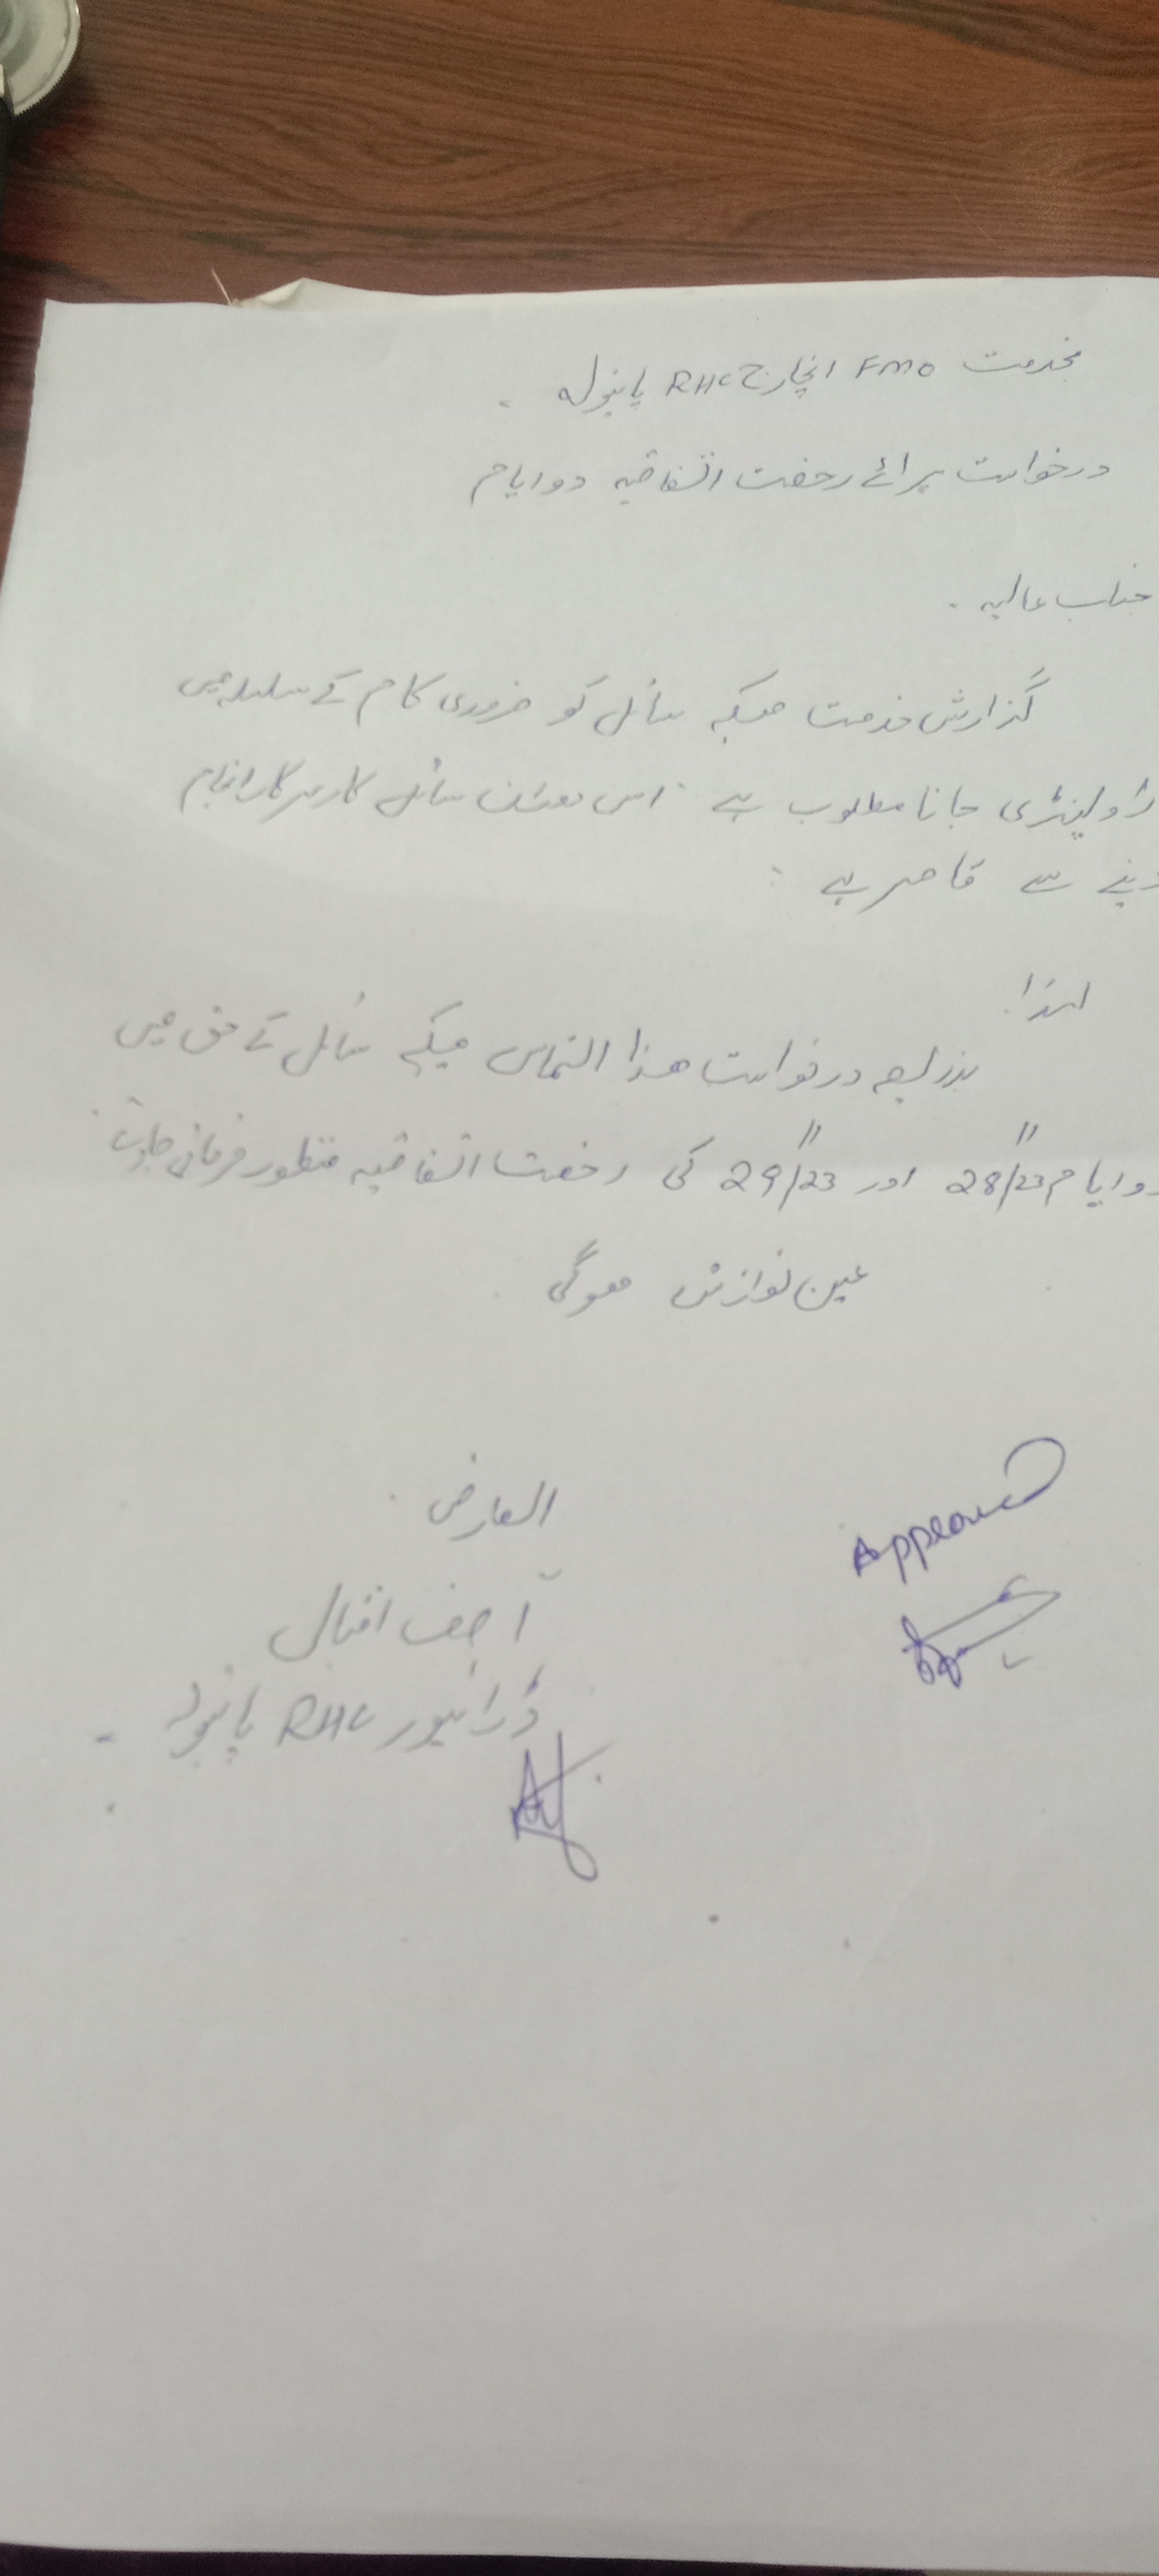 بخدمت FMO انچارج RHC پانیولہ ۔
درخواست برائے رخصت اتفاقیہ دو ایام
جناب عالیہ ۔
گذارش خدمت ھیکہ سائل کو ضروری کام کے سلسلہ میں
راولپنڈی جانا مطلوب ہے اس دوران سائل کار سرکار انجام
دینے سے قاصر ہے
لہذا
بذریعہ درخواست ھذا التماس ھیکہ سائل کے حق میں
دو ایام 28/11/23 اور 29/11/23 کی رخصت اتفاقیہ منظور فرمائی جاوے
عین نوازش ھوگی
العارض
آصف اقبال
ڈرائیور RHC پانیولہ ۔
Approved